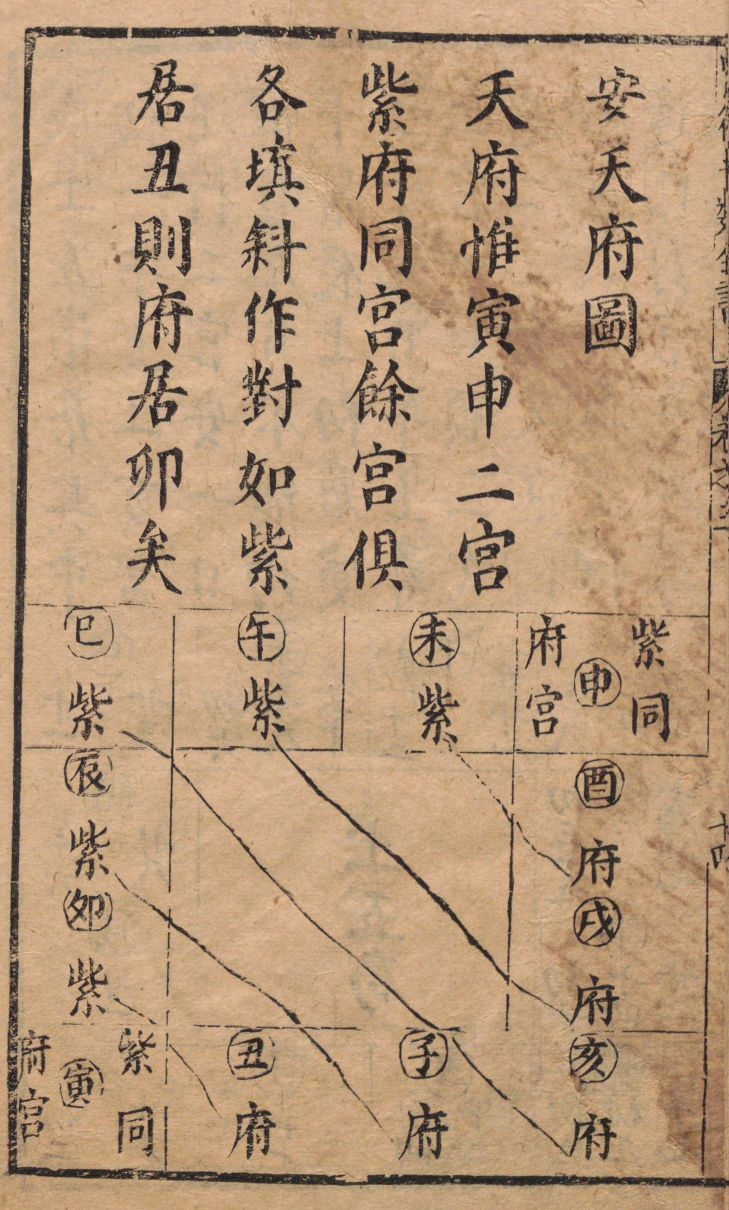 安天府圖
天府惟寅申二宮
紫府同宮餘宮俱
各填斜作對如紫
居丑則府居卯矣
紫同
申
府宮
未
紫
午
紫
巳
紫
酉
府
戌
府
亥
府
辰
紫
卯
紫
紫同
寅
府宮
丑
府
子
府
十四